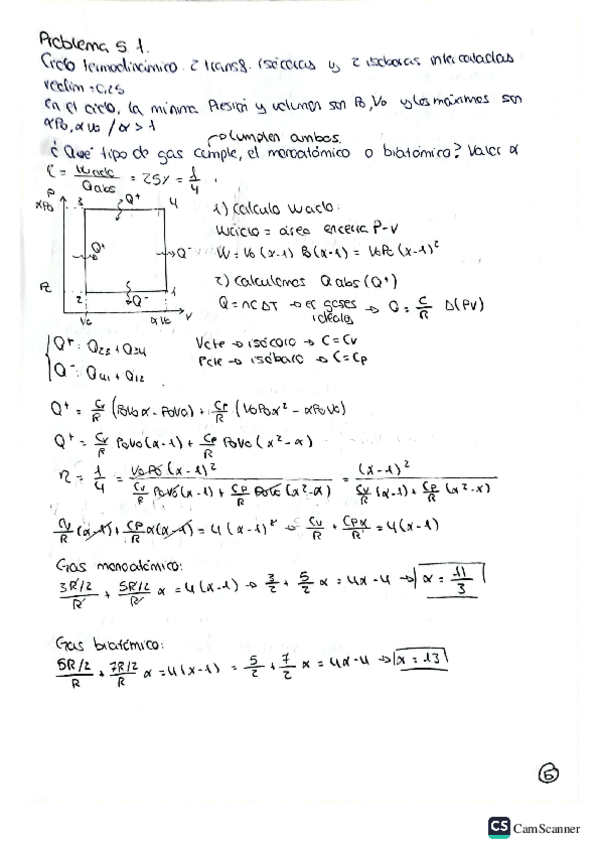 Problema 5.1.
Ciclo termodinámico. 2 transf. isócoras y 2 isobaras intercaladas
rendim = 0,25
en el ciclo, la mínima Presión y volumen son Po, Vo y los máximos son
αPo, αVo / α > 1
→ cumplen ambos.
¿Qué tipo de gas cumple, el monoatómico o biatómico? Valor α
η = Wciclo / Qabs = 25% = 1/4.
P
αPo
3
Q+
4
Q+
Q-
Po
2
Q-
1
Vo
αVo
V
1) Calculo Wciclo:
Wciclo = área encierra P-V
W = Vo(α-1) Po(α-1) = VoPo(α-1)²
2) Calculamos Qabs (Q+)
Q = nCΔT → gases ideales → Q = C/R Δ(PV)
Q+: Q23 + Q34
Q-: Q41 + Q12
V cte → isócoro → C = Cv
P cte → isóbaro → C = Cp
Q+ = Cv/R (PoVoα - PoVo) + Cp/R (VoPoα² - αPoVo)
Q+ = Cv/R PoVo(α-1) + Cp/R PoVo(α²-α)
η = 1/4 = VoPo(α-1)² / (Cv/R PoVo(α-1) + Cp/R PoVo(α²-α)) = (α-1)² / (Cv/R (α-1) + Cp/R (α²-α))
Cv/R (α-1) + Cp/R α(α-1) = 4(α-1)² → Cv/R + Cpα/R = 4(α-1)
Gas monoatómico:
(3R/2)/R + (5R/2)/R α = 4(α-1) → 3/2 + 5/2 α = 4α-4 → α = 11/3
Gas biatómico:
(5R/2)/R + (7R/2)/R α = 4(α-1) = 5/2 + 7/2 α = 4α-4 → α = 13
5
CS CamScanner